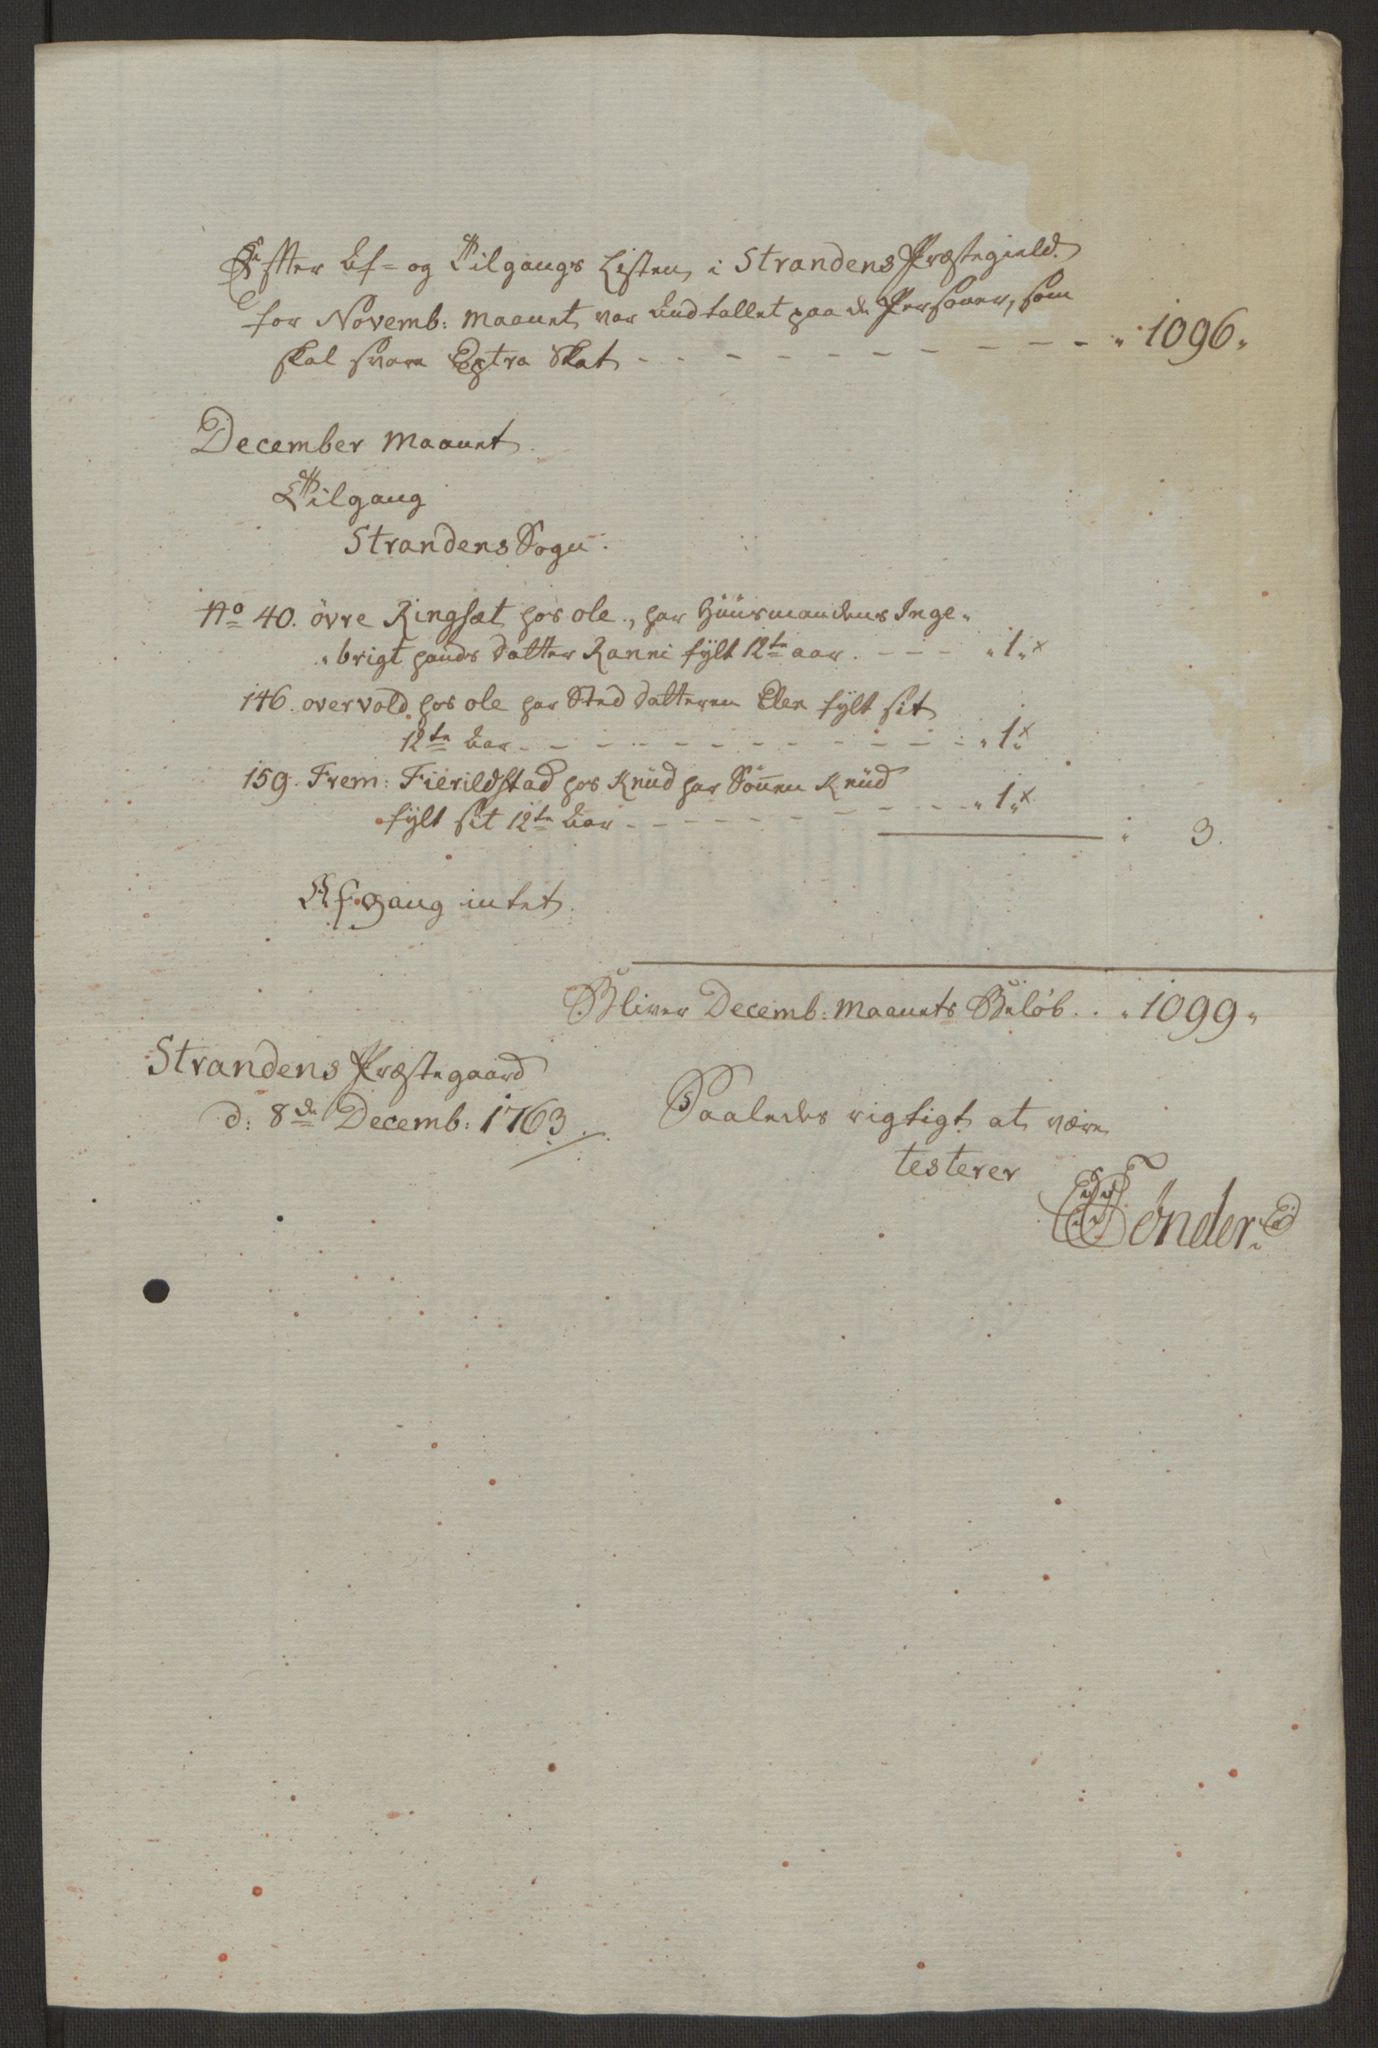 Effter Af- og Tilgangs Listen i Strandens Præstegield
for Novemb: Maanet var Endtallet paa de Personer, som
skal svare Extra Skat - - - - - - - - - - - - " 1096 "
December Maanet
Tilgang
Strandens Sogn.
No 40. övre Ringsæt hos ole, har Huusmandens Inge"
"brigt hands datter Ranni fylt 12te aar. - - - "1" x
146. overvold hos ole har Sted datteren Elen fylt sit
12te Aar - - - - - - - - - - - - "1" x
159. Frem: Fierildstad hos Knud har Sönnen Knud
fylt sit 12te Aar - - - - - - - - - "1" x
" 3.
Afgang intet.
Bliver Decemb: Maanets Belöb . . " 1099 "
Strandens Præstegaard
d: 8de Decemb: 1763.
Saaledes rigtigt at være
testerer
Tønder